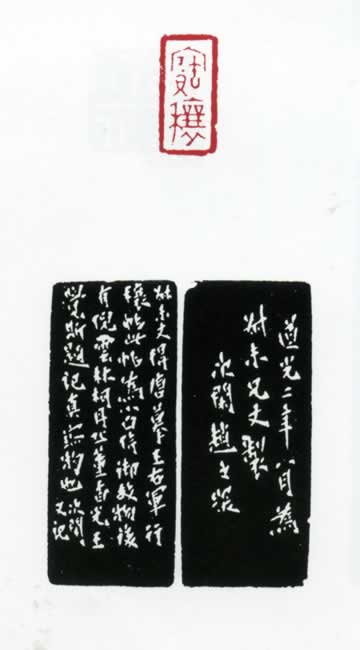 寶穰
道光二年八月為
叔未兄丈製
次閑趙之琛
叔未丈得唐摹王右軍行
穰帖此帖為侍御故物後
有倪雲林柯丹丘董香光王
覺斯題記真尤物也次閑
又記